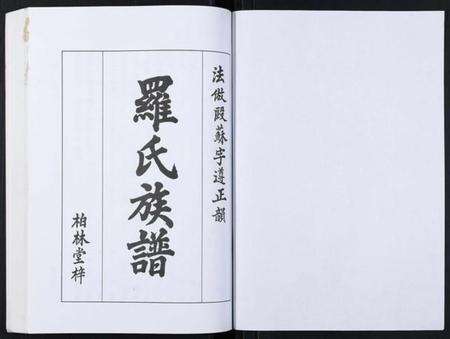 法倣殴蘇字遵正韻
羅氏族譜
柏林堂梓